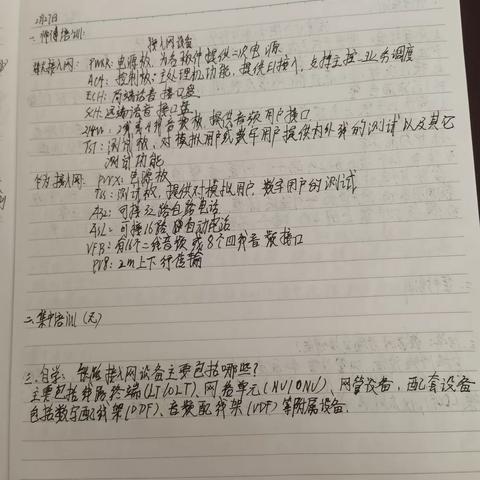 2月7日
一、师傅培训:
接入网设备
铁路接入网: PWRX: 电源板, 为各板件提供二次电源
控制板: 主处理机功能, 提供E1接入, 支持主控、业务调度
ECH: 局端话音接口盘
SCH: 远端话音接口盘
2/4线音频板, 提供音频用户接口
TST: 测试板, 对模拟用户或数字用户提供内外线的测试以及其它
测试功能
华为接入网: PWX: 电源板
TSS: 测试板, 提供对模拟用户、数字用户的测试
A32: 可接32路自动电话
ASL: 可接16路自动电话
VFB: 有16个二线音频或8个四线音频接口
PV8: 2m上下行传输
二、集中培训(无)
三、自学: 铁路接入网设备主要包括哪些?
主要包括线路终端(LT/OLT)、网络单元(NU/ONU)、网管设备, 配套设备
包括数字配线架(DDF)、音频配线架(VDF)等附属设备.